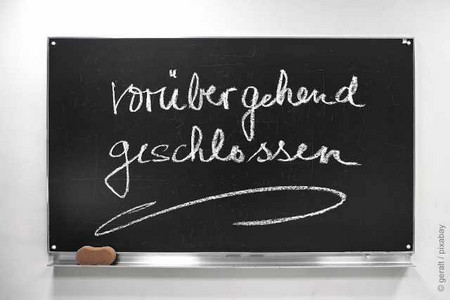 vorübergehend
geschlossen
© geralt / pixabay